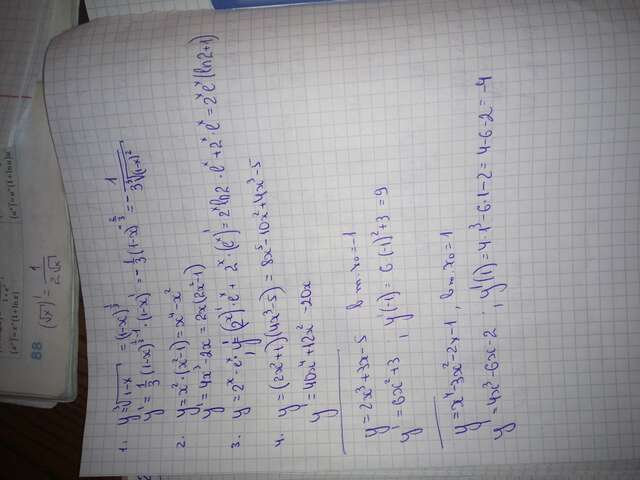 1. y=∛(1-x) = (1-x)^(1/3)
y' = 1/3 (1-x)^(1/3-1) · (1-x)' = -1/3 (1-x)^(-2/3) = - 1/(3∛(1-x)²)
2. y = x²·(x²-1) = x⁴-x²
y' = 4x³-2x = 2x(2x²-1)
3. y = 2ˣ·eˣ; y' = (2ˣ)'·eˣ + 2ˣ·(eˣ)' = 2ˣ ln2·eˣ + 2ˣ·eˣ = 2ˣeˣ(ln2+1)
4. y = (2x²+1)(4x³-5) = 8x⁵-10x²+4x³-5
y' = 40x⁴+12x²-20x
y = 2x³+3x-5 в т. x₀=-1
y' = 6x²+3 ; y'(-1) = 6·(-1)²+3 = 9
y = x⁴-3x²-2x-1, в т. x₀=1
y' = 4x³-6x-2 ; y'(1) = 4·1³-6·1-2 = 4-6-2 = -4
88 (√x)' = 1/(2√x)